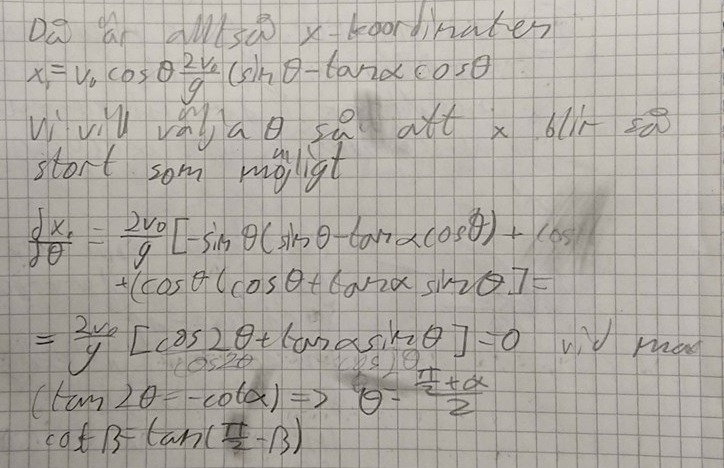 Då är alltså x-koordinaten
x₁ = v₀ cosθ 2v₀/g (sinθ - tanα cosθ
Vi vill välja θ så att x blir så
start som möjligt
dx₁/dθ = 2v₀/g [-sinθ(sinθ - tanαcosθ) + cos
+(cosθ(cosθ + tanα sinθ] =
= 2v₀/g [cos2θ + tanα sin2θ] = 0 vid max
cos2θ cos2θ
(tan2θ = -cotα) => θ = (π/2 + α)/2
cot β = tan(π/2 - β)